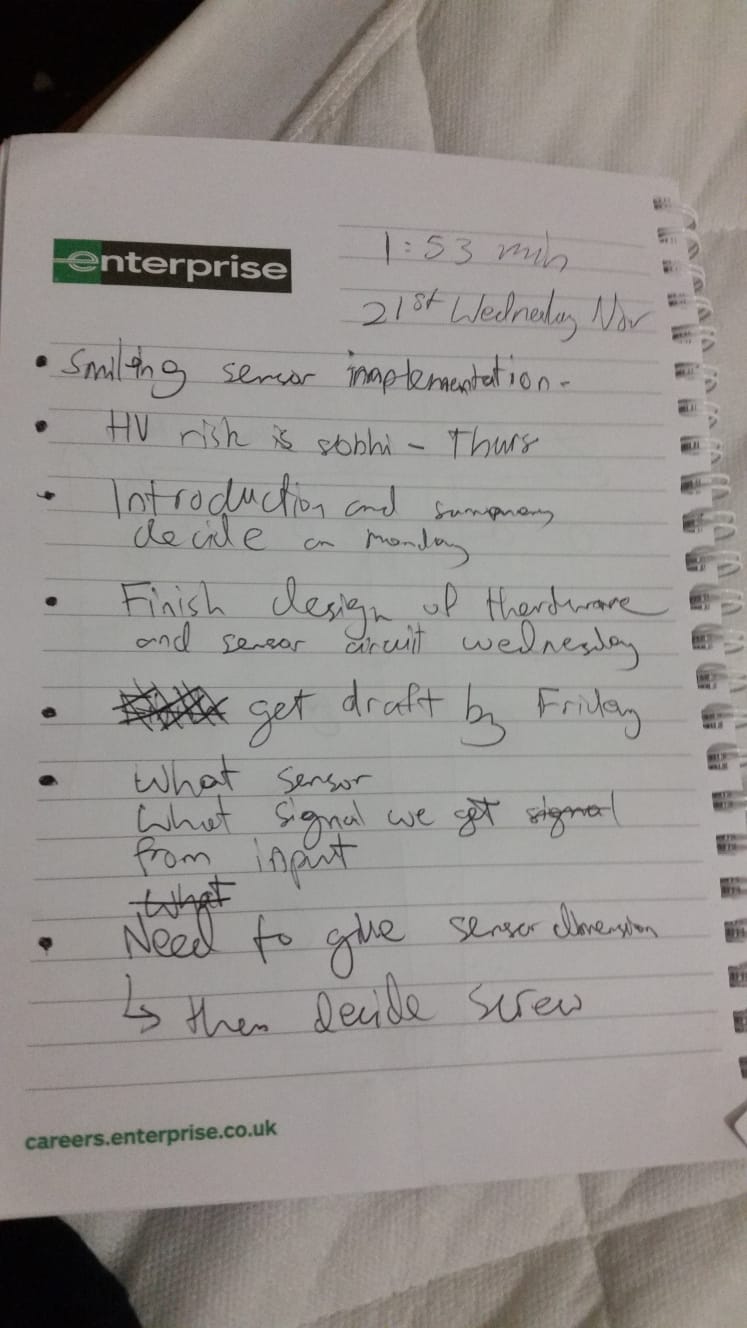 enterprise
1:53 min
21st Wednesday Nov
• Smilting sensor implementation-
• HV risk is sobhi - Thurs
• Introduction and summary
decide on monday
• Finish design of thardware
and sensor circuit wednesday
• get draft by Friday
• What sensor
What signal we get signal
from input
What
• Need to give sensor dimension
↳ then decide screw
careers.enterprise.co.uk